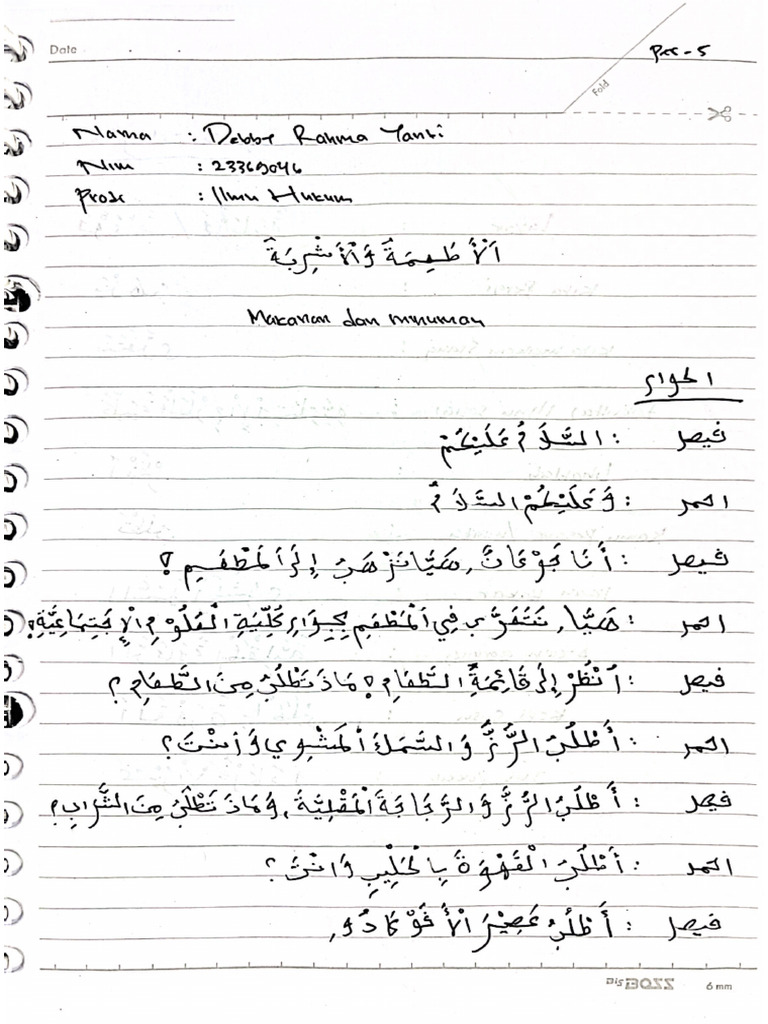 Date
Per-5
Fold
Nama : Debby Rahma Yanti
Nim : 23369046
Prodi : Ilmu Hukum
اَلْأَطْعِمَةُ وَالْأَشْرِبَةُ
Makanan dan minuman
الحوار
فيصل : السَّلَامُ عَلَيْكُمْ
احمد : وَعَلَيْكُمْ السَّلَامُ
فيصل : أَنَا جُوْعَانٌ، هَيَّا نَذْهَبُ إِلَى الْمَطْعَمِ؟
احمد : هَيَّا، نَتَغَدَّى فِي الْمَطْعَمِ بِجِوَارِ كُلِّيَّةِ الْعُلُوْمِ الْإِجْتِمَاعِيَّةِ؟
فيصل : اُنْظُرْ إِلَى قَائِمَةِ الطَّعَامِ؟ مَاذَ تَطْلُبُ مِنَ الطَّعَامِ؟
احمد : أَطْلُبُ الرُّزَّ وَ السَّمَكَ الْمَشْوِي وَ اَنْتَ؟
فيصل : أَطْلُبُ الرُّزَّ وَ الدَّجَاجَةَ الْمَقْلِيَّةَ، وَمَاذَ تَطْلُبُ مِنَ الشَّرَابِ؟
احمد : أَطْلُبُ الْقَهْوَةَ بِالْحَلِيْبِ وَانْتَ؟
فيصل : أَطْلُبُ عَصِيْرَ الْأَفُوْكَادُو,
Big BOSS 6 mm